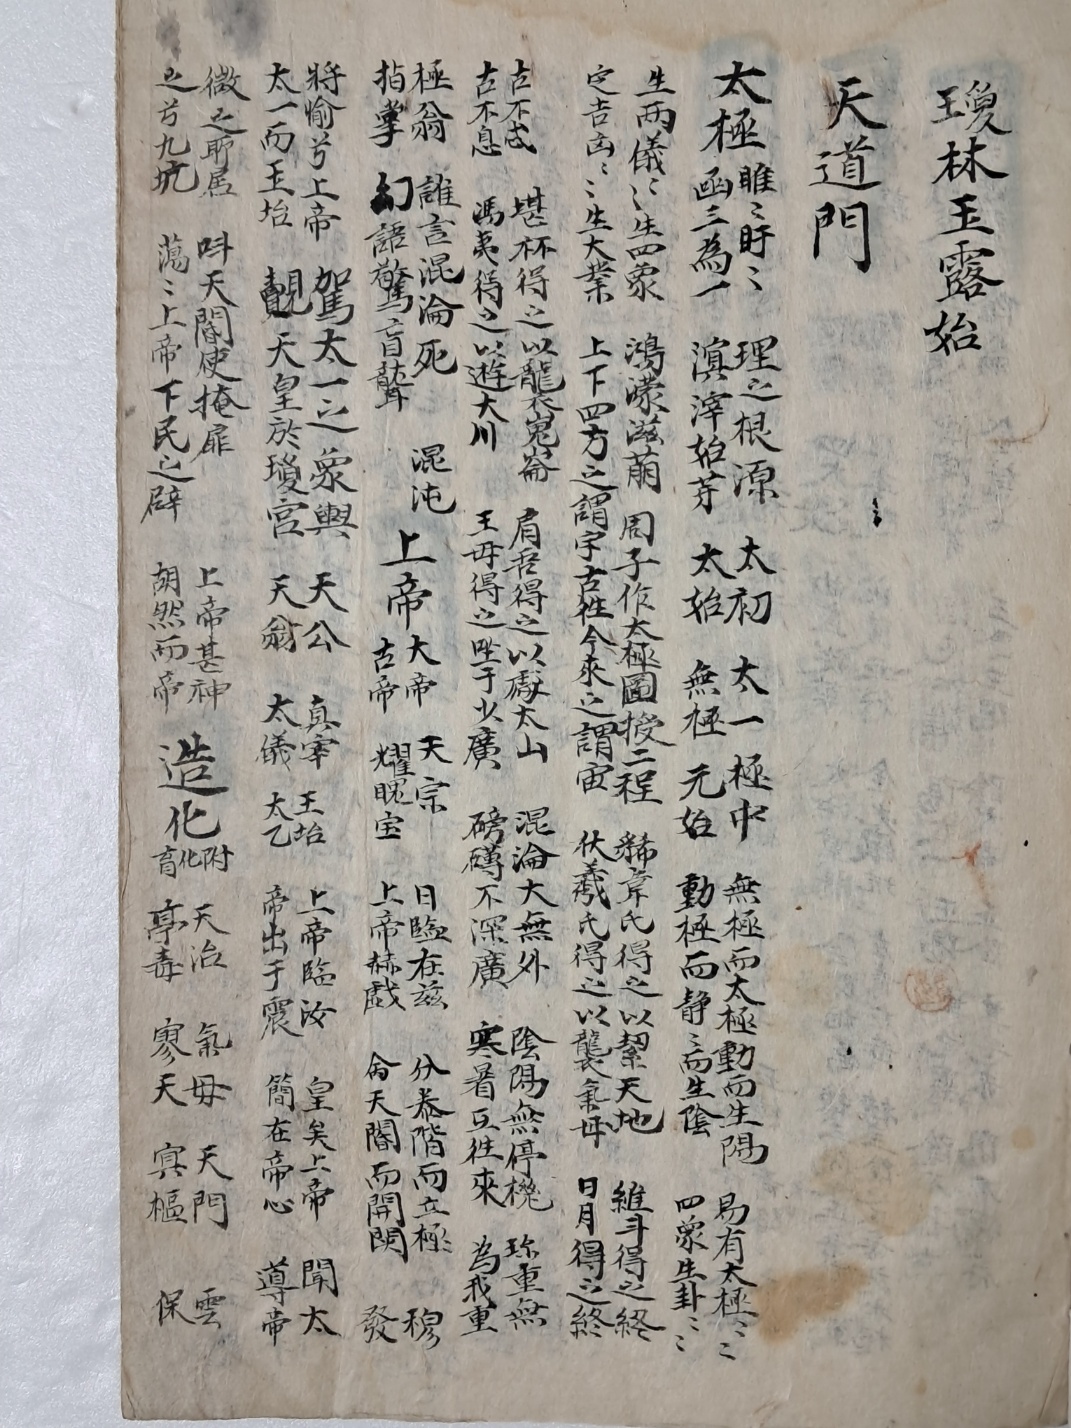 瓊林玉露始
天道門
太極
睢〻盱〻 理之根源 太初 太一 極中 無極而太極動而生陽 易有太極〻〻
函三為一 溟涬始芽 太始 無極 元始 動極而静〻而生陰 四象生卦〻〻
生兩儀〻〻生四象 鴻濛滋萠 周子作太極圖授二程 狶韋氏得之以挈天地 維斗得之終
定吉凶〻〻生大業 上下四方之謂宇古徃今來之謂宙 伏羲氏得之以襲氣母 日月得之終
古不忒 堪杯得之以襲崑崙 肩吾得之以處太山 混淪大無外 陰陽無停機 珎重無
古不息 馮夷得之以遊大川 王母得之坐于少廣 磅礴不深廣 寒暑互徃來 為我重
極翁 誰言混淪死 混沌
指掌 幻語驚盲聾
上帝
大帝 天宗 日監在兹 分泰階而立極 穆
古帝 耀魄宝 上帝赫戯 侖天閽而開閼 發
將愉兮上帝 駕太一之象輿 天公 真宰 玉始 上帝臨汝 皇矣上帝 聞太
太一而玉始 覿天皇於瓊宮 天翁 太儀 太乙 帝出于震 簡在帝心 導帝
徼之郍居 呌天閽使掩扉 上帝甚神
之兮九坑 蕩〻上帝下民之辟 胡然而帝
造化
附化育
天治 氣母 天門 雲
亭毒 寥天 冥樞 保